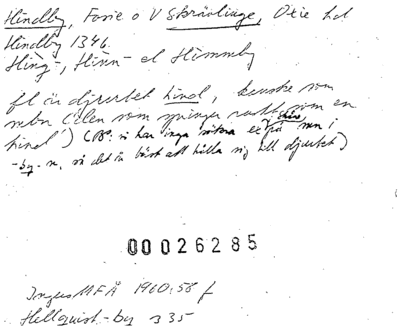 Hindby, Fosie o V Skrävlinge, Oxie hd
Hindby 1346.
Hing-, Hinn- el Himmby
fl är djurordet hind, kanske som
mbn ('den som springer rastt som en
hind') (PS: vi har inga säkra ex på mn i
-by-n, så det är bäst att hålla sig till djuret)
00026285
Ingers MFÅ 1960:58 f
Hellquist -by 335